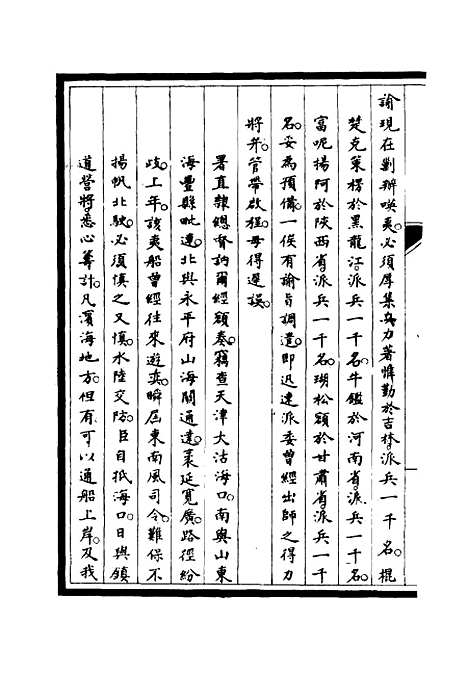 諭現在剿辦嘆夷必須厚集兵力著惟勤於吉林派兵一千名棍
楚克策楞於黑龍江派兵一千名牛鑑於河南省派兵一千名
富呢揚阿於陝西省派兵一千名瑚松額於甘肅省派兵一千
名妥為預備一俟有諭旨調遣即迅速派委曾經出師之得力
將弁管帶啟程毋得遲誤
署直隸總督訥爾經額奏竊查天津大沽海口南與山東
海豐縣毗連北與永平府山海關通達袤延寬廣路徑紛
歧上年該夷船曾經往來遊奕瞬屆東南風司令難保不
揚帆北駛必須慎之又慎水陸交防臣自抵海口日與鎮
道營將悉心籌計凡濱海地方但有可以通船上岸及我